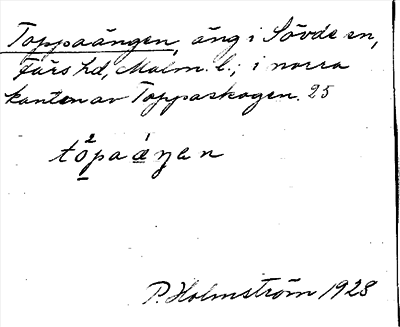 Toppaängen, äng i Sövde sn,
Färs hd, Malm. l.; i norra
kanten av Toppaskogen. 25
tòpaáŋen
P. Holmström 1928